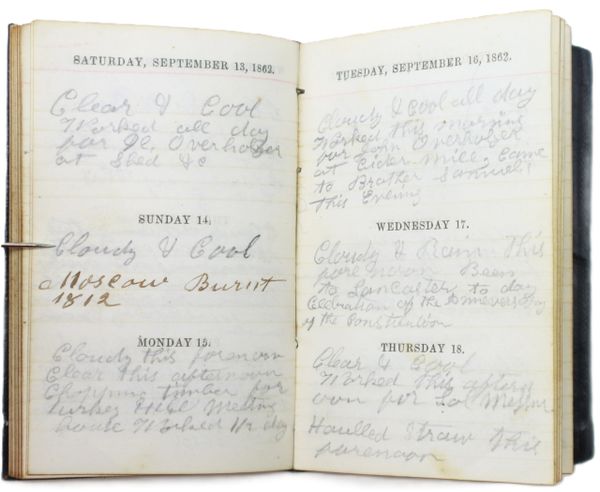 SATURDAY, SEPTEMBER 13, 1862.
Clear & Cool
Worked all day
for Overholzer
at Shed &c
SUNDAY 14.
Cloudy & Cool
Moscow Burnt
1812
MONDAY 15.
Cloudy this forenoon
Clear this afternoon
Chopping timber for
turkey Hill Meeting
house Worked 1/2 day
TUESDAY, SEPTEMBER 16, 1862.
Cloudy & Cool all day
Worked this morning
for John Overholzer
at Cider Mill, Came
to Brother Samuels
this Evening
WEDNESDAY 17.
Cloudy & Rain This
forenoon Been
to Lancaster to day
Celebration of the Day
of the Constitution
THURSDAY 18.
Clear & Cool
Worked this aftern
oon for Sol
Haulled Straw this
forenoon